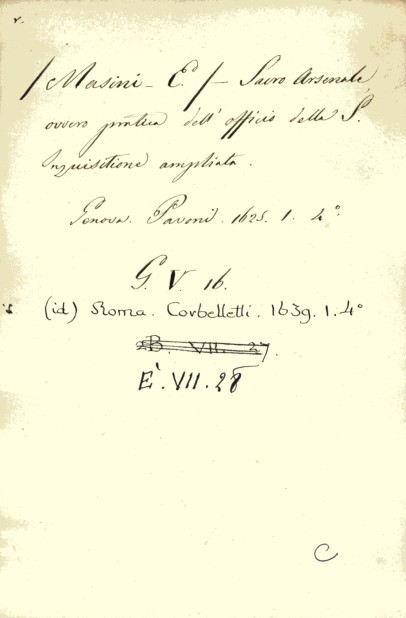 / Masini - E.º / - Sacro Arsenale,
ovvero pratica dell' officio della S.
Inquisitione ampliata.
Genova. Pavoni. 1625. 1. 4º.
G. V. 16.
(id) Roma. Corbelletti. 1639. 1. 4º
B. VII. 27.
E'. VII. 28
C